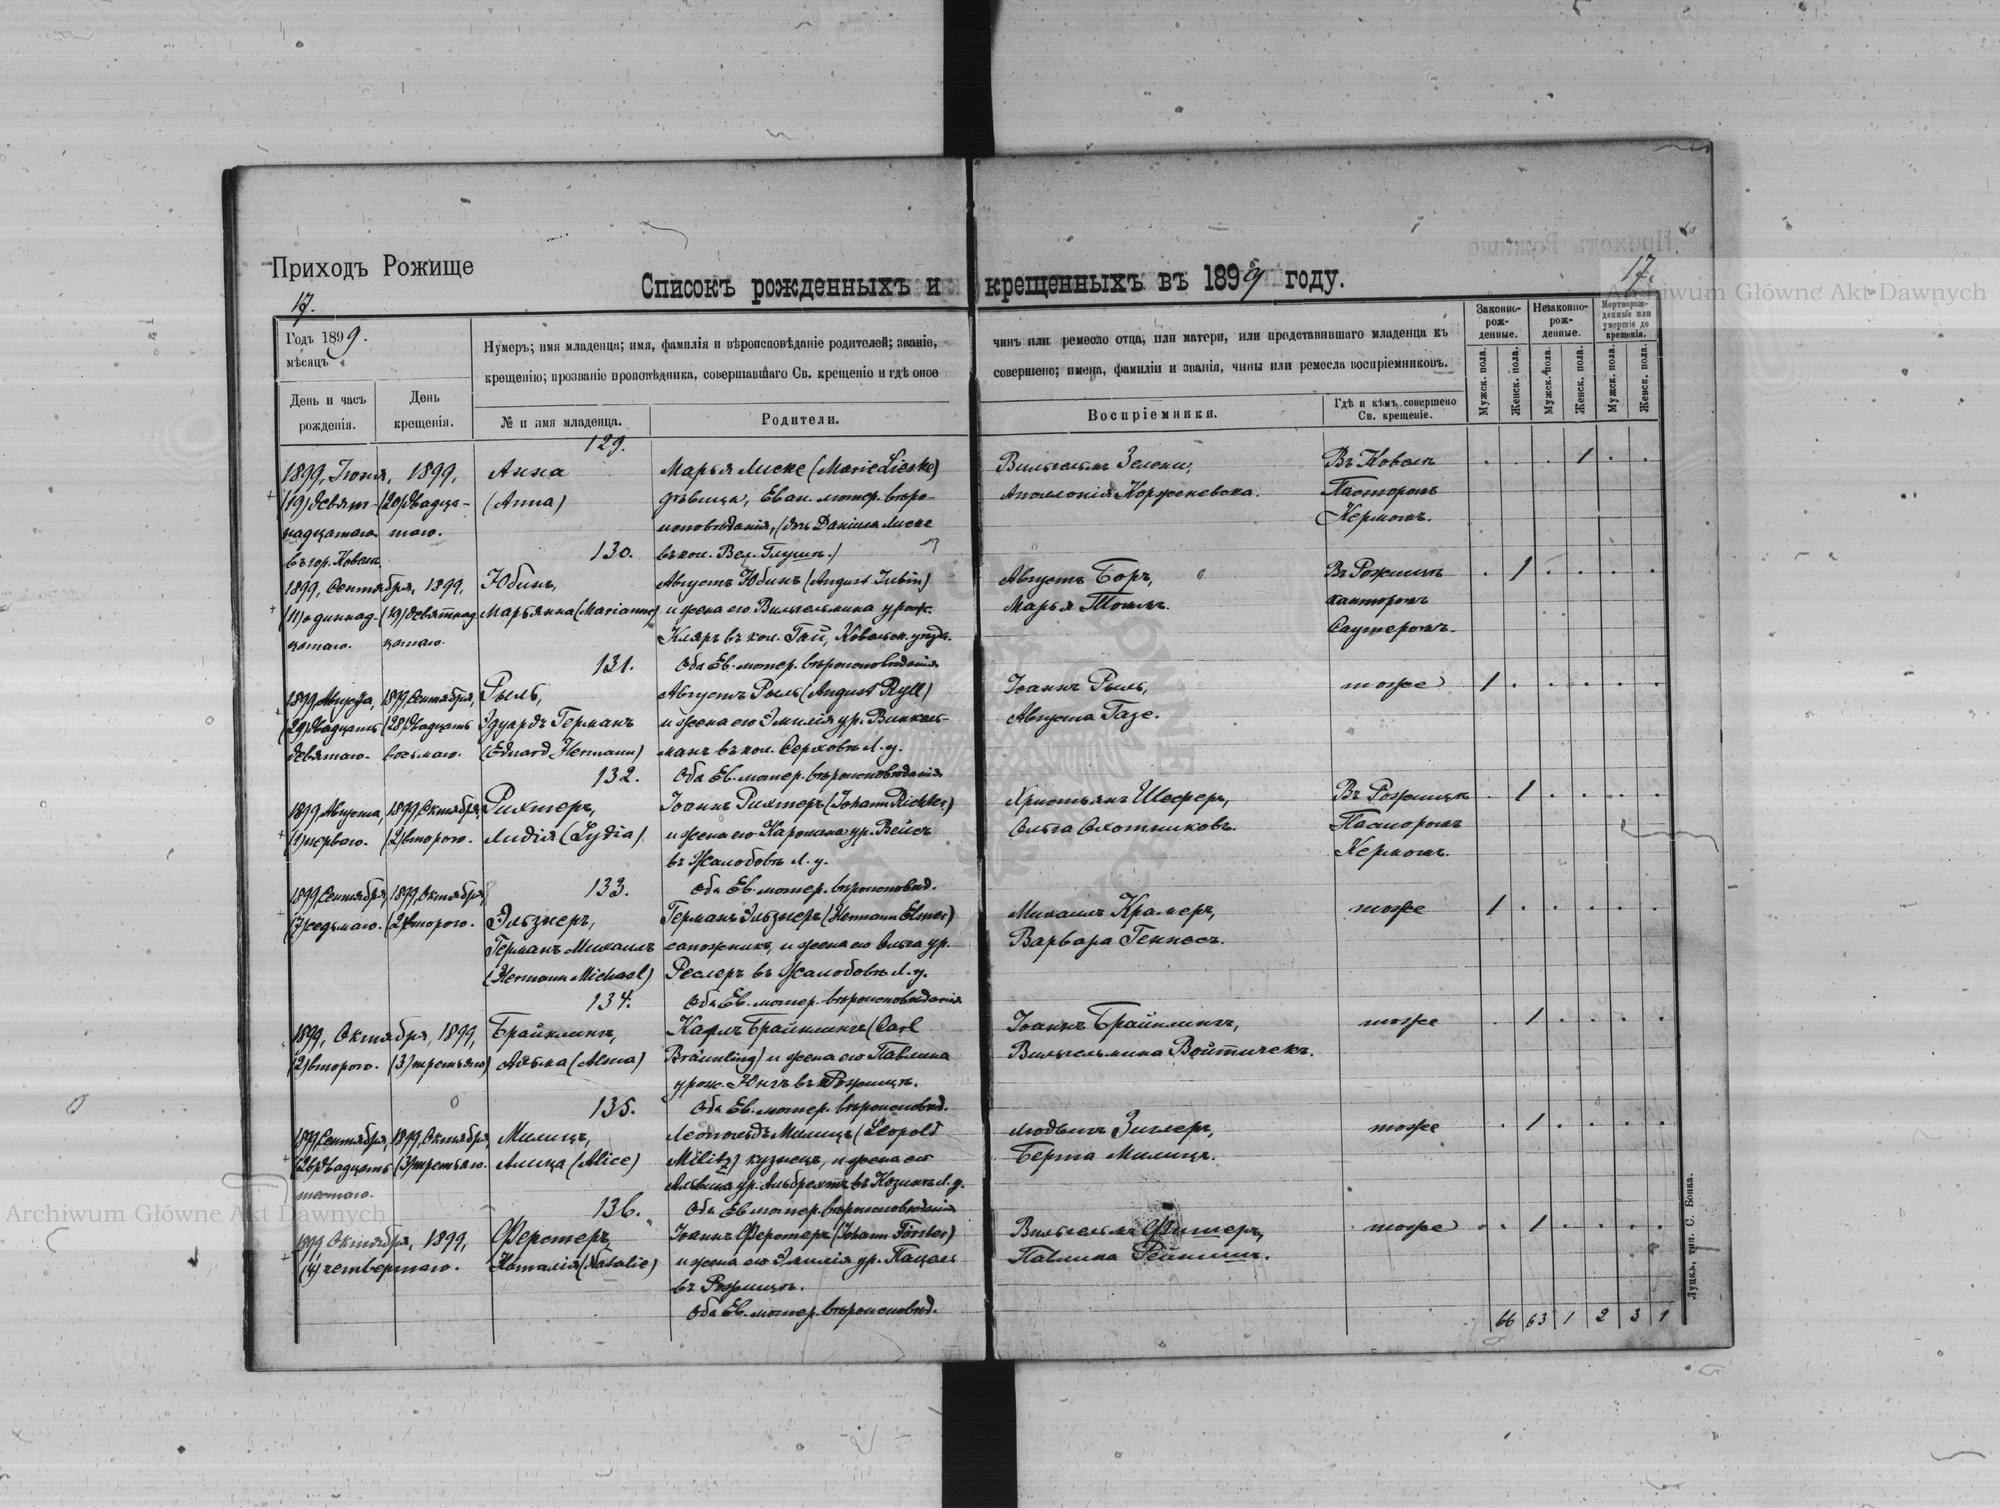 Приходъ Рожище
17.
17.
Списокъ рожденныхъ и крещенныхъ въ 1899 году.
Годъ 1899.
мѣсяцъ
День и часъ рожденія.
День крещенія.
Нумеръ; имя младенца; имя, фамилія и вѣроисповѣданіе родителей; званіе, чинъ или ремесло отца, или матери, или представившаго младенца къ
крещенію; прозваніе проповѣдника, совершавшаго Св. крещеніе и гдѣ оное совершено; имена, фамиліи и званія, чины или ремесла воспріемниковъ.
№ и имя младенца.
Родители.
Воспріемники.
Гдѣ и кѣмъ совершено Св. крещеніе.
Законно-рожденные.
Незаконно-рожденные.
Мертворожденные или умершіе до крещенія.
Мужск. пола.
Женск. пола.
Мужск. пола.
Женск. пола.
Мужск. пола.
Женск. пола.
129.
1899, Іюня, 1899, Анна Марья Лиске (Marie Lieske) Вильгельмъ Въ Ковелѣ 1
(19) девят- (20) двадца- (Anna) дѣвица, Еван. лютер. вѣро- Аполонія Корженевска. Пасторомъ
надцатаго таго. исповѣданія, (дочь Даніила Лиске Кермомъ.
въ гор. Ковелѣ 130. въ кол. Вел. Глуша.)
1899, Сентября, 1899, Юбинъ, Августъ Юбинъ (August Jubin) Августъ Боръ, Въ Рожищѣ 1
(11) одиннад- (19) девятнад- Марьянна (Marianne) и жена его Вильгельмина урож. Марья канторомъ
цатаго. цатаго. Кляръ въ кол. Гай, Ковельск. уѣзда. Саутеромъ.
131. Оба Ев. лютер. вѣроисповѣданія
1899, Августа, 1899, Сентября, Рыль, Августъ Рыль (August Ryll) Іоаннъ Рыль, тоже 1
(29) двадцать (28) двадцать Эдуардъ Германъ и жена его Эмилія ур. Винкель- Августа Газе.
девятаго. восьмаго. (Eduard Hermann) манъ въ кол. Серховѣ Л. у.
132. Оба Ев. лютер. вѣроисповѣданія
1899, Августа, 1899, Октября, Рихтеръ, Іоаннъ Рихтеръ (Johann Richter) Христьянъ Шеферъ, Въ Рожищѣ 1
(1) перваго. (2) второго. Лидія (Lydia) и жена его Каролина ур. Вейсъ Ольга Охотниковъ. Пасторомъ
въ Жалобовѣ Л. у. Кермомъ.
133. Оба Ев. лютер. вѣроисповѣд.
1899, Сентября, 1899, Октября,
(7) седьмаго. (2) второго. Эльзнеръ, Германъ Эльзнеръ (Hermann Elsner) Михаилъ Крамеръ, тоже 1
Германъ Михаилъ сапожникъ, и жена его Ольга ур. Варвара Геннесъ.
(Hermann Michael) Реслеръ въ Жалобовѣ Л. у.
134. Оба Ев. лютер. вѣроисповѣданія
1899, Октября, 1899, Брайнлингъ, Карлъ Брайнлингъ (Carl Іоаннъ Брайнлингъ, тоже 1
(2) второго. (3) третьяго) Альма (Alma) Bräunling) и жена его Павлина Вильгельмина Войтичекъ.
урож. Юнгъ въ Рожищѣ.
135. Оба Ев. лютер. вѣроисповѣд.
1899, Сентября, 1899, Октября, Милицъ, Леопольдъ Милицъ (Leopold Людвигъ Зиглеръ, тоже 1
(26) двадцать (3) третьяго. Алица (Alice) Militz) кузнецъ, и жена его Берта Милицъ.
шестаго. Альвина ур. Альбрехтъ въ Козинѣ Л. у.
136. Оба Ев. лютер. вѣроисповѣданія
1899, Октября, 1899, Ферстеръ, Іоаннъ Ферстеръ (Johann Förster) Вильгельмъ Фишеръ, тоже 1
(4) четвертаго. Наталія (Natalie) и жена его Эмилія ур. Пацель Павлина
въ Рожищѣ.
Оба Ев. лютер. вѣроисповѣд.
66 63 1 2 3 1
Луцкъ, тип. С. Бонка.
Archiwum Główne Akt Dawnych
Archiwum Główne Akt Dawnych